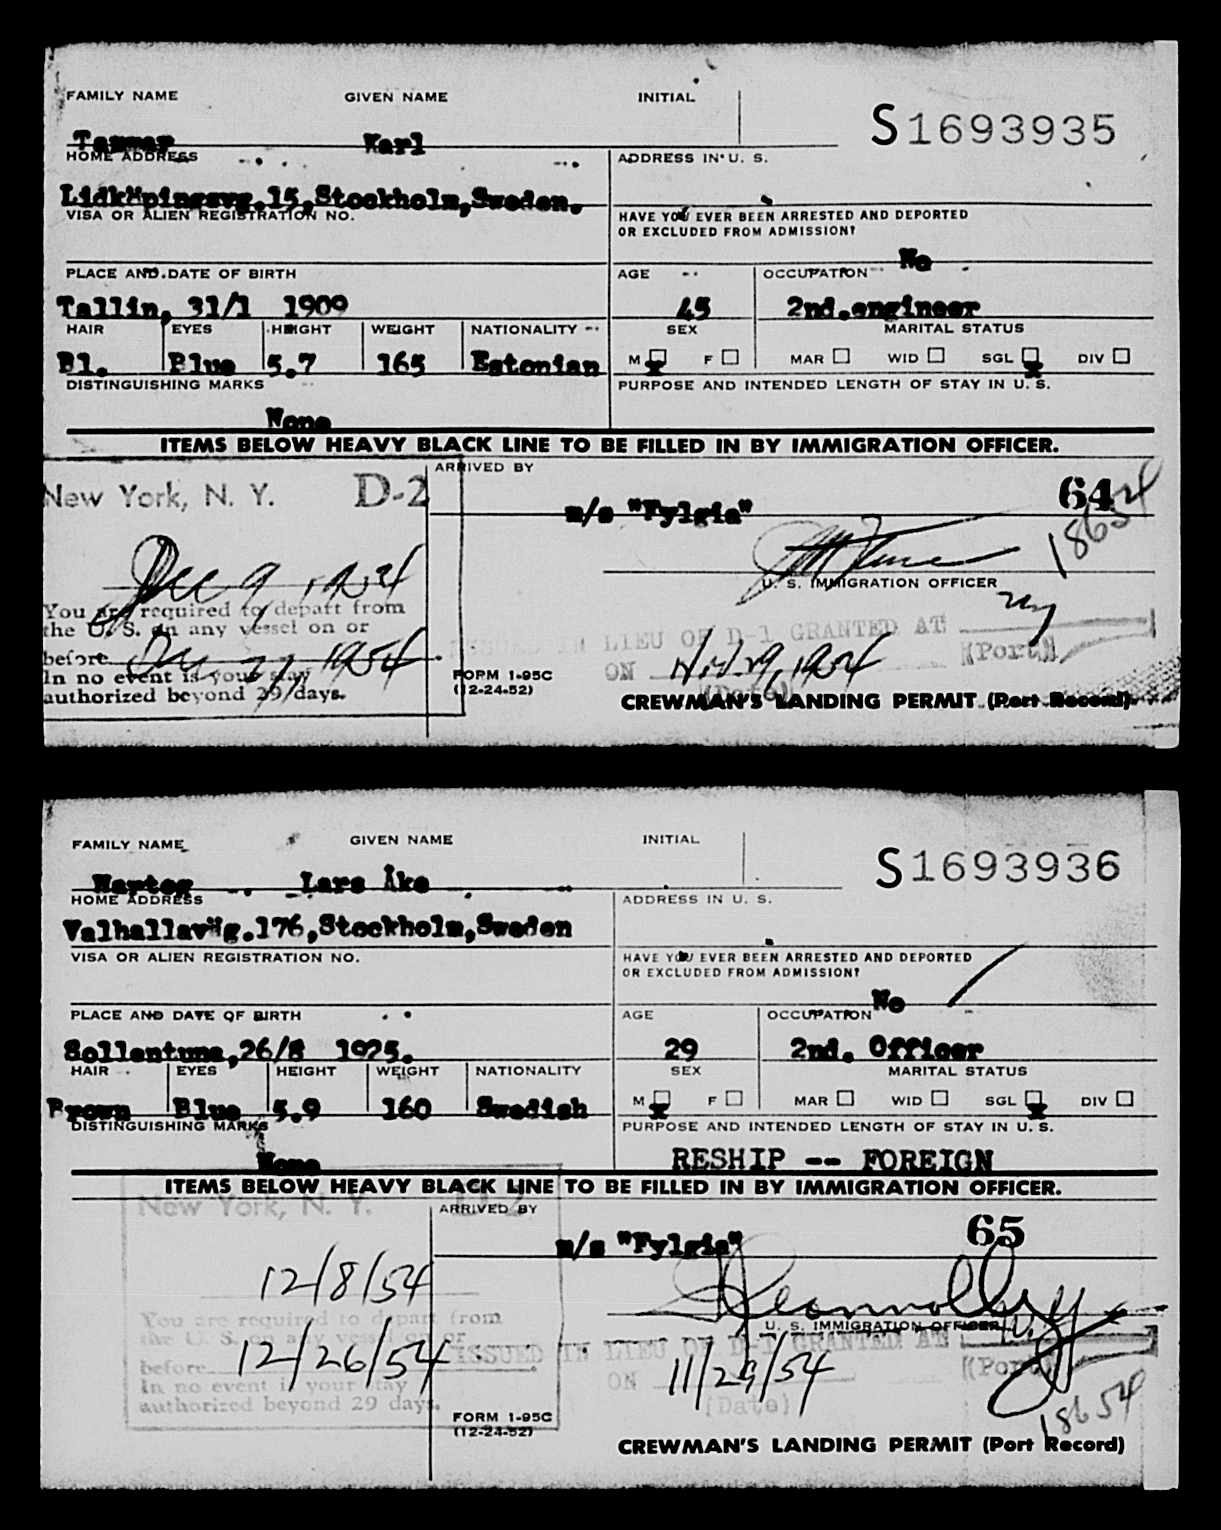 FAMILY NAME GIVEN NAME INITIAL
S1693935
Karl
HOME ADDRESS ADDRESS IN U. S.
Lidköpingsvg.15,Stockholm,Sweden.
VISA OR ALIEN REGISTRATION NO. HAVE YOU EVER BEEN ARRESTED AND DEPORTED
OR EXCLUDED FROM ADMISSION?
No
PLACE AND DATE OF BIRTH AGE OCCUPATION
Tallin, 31/1 1909 45 2nd.engineer
HAIR EYES HEIGHT WEIGHT NATIONALITY SEX MARITAL STATUS
Bl. Blue 5.7 165 Estonian M x F MAR WID SGL x DIV
DISTINGUISHING MARKS PURPOSE AND INTENDED LENGTH OF STAY IN U. S.
None
ITEMS BELOW HEAVY BLACK LINE TO BE FILLED IN BY IMMIGRATION OFFICER.
ARRIVED BY
New York, N. Y. D-2
m/s "Fylgia" 64
18654
Dec 9 1954
U. S. IMMIGRATION OFFICER
NY
You are required to depart from
the U. S. on any vessel on or
before Dec 1954
In no event is your stay
authorized beyond 29 days.
ISSUED IN LIEU OF D-1 GRANTED AT
(Port)
ON Nov 29, 1954
(Date)
FORM I-95C
(12-24-52)
CREWMAN'S LANDING PERMIT (Port Record)
FAMILY NAME GIVEN NAME INITIAL
S1693936
Lars Åke
HOME ADDRESS ADDRESS IN U. S.
Valhallaväg.176,Stockholm,Sweden
VISA OR ALIEN REGISTRATION NO. HAVE YOU EVER BEEN ARRESTED AND DEPORTED
OR EXCLUDED FROM ADMISSION?
No
PLACE AND DATE OF BIRTH AGE OCCUPATION
Sollentuna,26/8 1925. 29 2nd. Officer
HAIR EYES HEIGHT WEIGHT NATIONALITY SEX MARITAL STATUS
Brown Blue 5.9 160 Swedish M x F MAR WID SGL x DIV
DISTINGUISHING MARKS PURPOSE AND INTENDED LENGTH OF STAY IN U. S.
None RESHIP -- FOREIGN
ITEMS BELOW HEAVY BLACK LINE TO BE FILLED IN BY IMMIGRATION OFFICER.
New York, N. Y. D-2
ARRIVED BY
m/s "Fylgia" 65
12/8/54
U. S. IMMIGRATION OFFICER
You are required to depart from
the U. S. on any vessel on or
before 12/26/54
In no event is your stay
authorized beyond 29 days.
ISSUED IN LIEU OF D-1 GRANTED AT
(Port)
ON 11/29/54
(Date)
18654
FORM I-95C
(12-24-52)
CREWMAN'S LANDING PERMIT (Port Record)